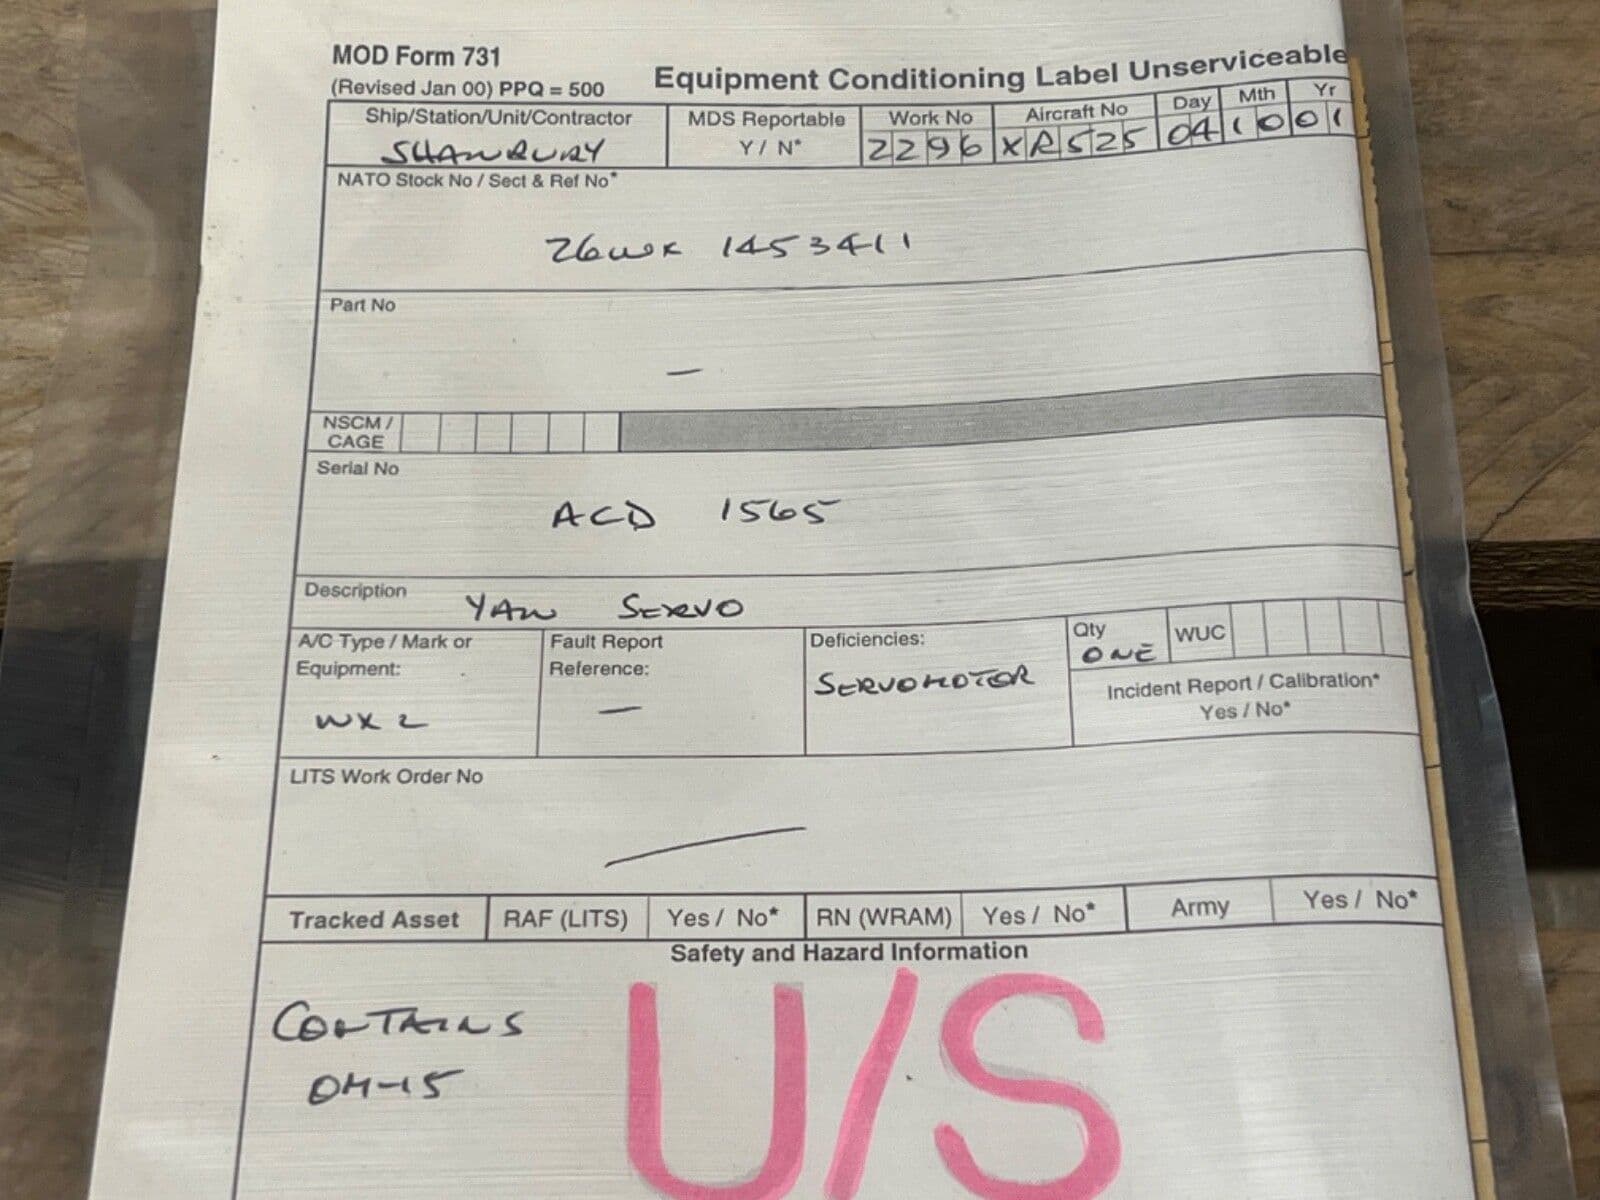 MOD Form 731
(Revised Jan 00) PPQ = 500
Equipment Conditioning Label Unserviceable
Ship/Station/Unit/Contractor
SHAWBURY
MDS Reportable
Y / N*
Work No
2296
Aircraft No
XR525
Day Mth Yr
04 10 01
NATO Stock No / Sect & Ref No*
26WX 1453411
Part No
—
NSCM /
CAGE
Serial No
ACD 1565
Description
YAW SERVO
A/C Type / Mark or
Equipment:
WX 2
Fault Report
Reference:
—
Deficiencies:
SERVOMOTOR
Qty
ONE
WUC
Incident Report / Calibration*
Yes / No*
LITS Work Order No
Tracked Asset RAF (LITS) Yes / No* RN (WRAM) Yes / No* Army Yes / No*
Safety and Hazard Information
CONTAINS
OM-15
U/S